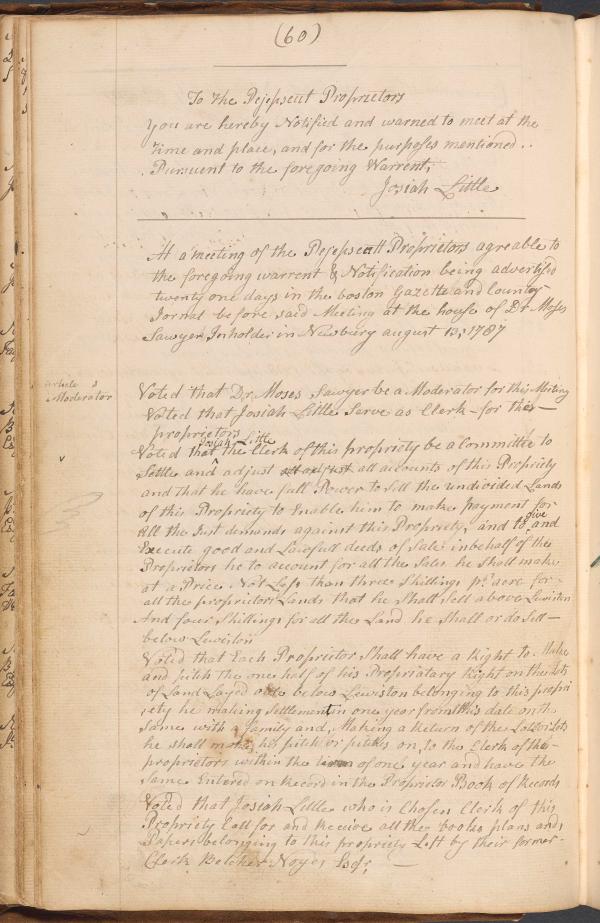 (60)
To the Pejepscut Proprietors
You are hereby Notified and warned to meet at the
time and place, and for the purposes mentioned..
Pursuent to the foregoing Warrent,
Josiah Little
At a meeting of the Pejepscutt Proprietors agreable to
the foregoing warrent & Notification being advertised
twenty one days in the boston Gazette and Country
Jornal before said Meeting at the house of Dr. Moses
Sawyer Inholder in Newbury august 13, 1787
article
Moderator
Voted that Dr. Moses Sawyer be a Moderator for this Meeting
Voted that Josiah Little Serve as Clerk for this
proprietors
Josiah Little
Voted that the Clerk of this propriety be a Committe to
Settle and adjust all accounts of this Propriety
and that he have full Power to Sell the undivided Lands
of this Propriety to Enable him to make payment for
all the Just demands against this Propriety, and to give and
Execute good and Lawfull deeds of Sale in behalf of the
Proprietors he to account for all the Sales he Shall make
at a Price Not Less than three Shillings pr. acre for
all the proprietors Lands that he Shall Sell above Lewiston
And four Shillings for all the Land he Shall or do Sell
below Lewiston
Voted that Each Proprietor Shall have a Right to Make
and pitch the one half of his Propriatary Right on the Lots
of Land Layed oute below Lewiston belonging to this propri
ety he making Settlement in one year from this date on the
Same with a family and, Making a Return of the Lott or Lots
he shall make his pitch or pitches on, to the Clerk of the
proprietors within the term of one year and have the
Same Entered on Record in the Proprietor Book of Records
Voted that Josiah Little who is Chosen Clerk of this
Propriety Call for and Receive all the books plans and
Papers belonging to this propriety Left by their former
Clerk Belcher Noyes Esqr.